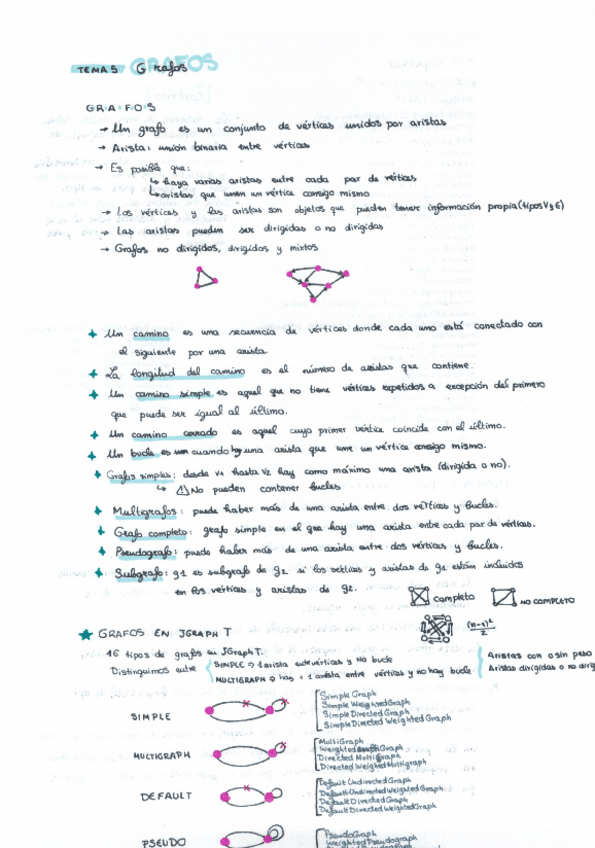 TEMA 5 GRAFOS Grafos
G·R·A·F·O·S
→ Un grafo es un conjunto de vértices unidos por aristas
→ Arista: unión binaria entre vértices
→ Es posible que:
↳ haya varias aristas entre cada par de vértices
↳ aristas que unen un vértice consigo mismo
→ Los vértices y las aristas son objetos que pueden tener información propia (tipos V y E)
→ Las aristas pueden ser dirigidas o no dirigidas
→ Grafos no dirigidos, dirigidos y mixtos
Un camino es una secuencia de vértices donde cada uno está conectado con
el siguiente por una arista.
La longitud del camino es el número de aristas que contiene.
Un camino simple es aquel que no tiene vértices repetidos a excepción del primero
que puede ser igual al último.
Un camino cerrado es aquel cuyo primer vértice coincide con el último.
Un bucle es un cuando hay una arista que une un vértice consigo mismo.
Grafos simples: desde v1 hasta v2 hay como máximo una arista (dirigida o no).
↳ ⚠ No pueden contener bucles
Multigrafos: puede haber más de una arista entre dos vértices y bucles.
Grafo completo: grafo simple en el que hay una arista entre cada par de vértices.
Pseudografo: puede haber más de una arista entre dos vértices y bucles.
Subgrafo: g1 es subgrafo de g2 si los vértices y aristas de g1 están incluidos
en los vértices y aristas de g2.
completo
NO COMPLETO
(n-1)²
2
★ GRAFOS EN JGRAPH T
16 tipos de grafos en JGraph T.
Distinguimos entre
SIMPLE → 1 arista entre vértices y NO bucle
MULTIGRAPH → hay + 1 arista entre vértices y no hay bucle
Aristas con o sin peso
Aristas dirigidas o no dirig
SIMPLE
Simple Graph
Simple WeightedGraph
Simple DirectedGraph
Simple Directed Weighted Graph
MULTIGRAPH
MultiGraph
Weighted Graph
Directed MultiGraph
Directed Weighted Multigraph
DEFAULT
Default UndirectedGraph
Default Undirected Weighted Graph
Default Directed Graph
Default Directed WeightedGraph
PSEUDO
PseudoGraph
Weighted Pseudograph